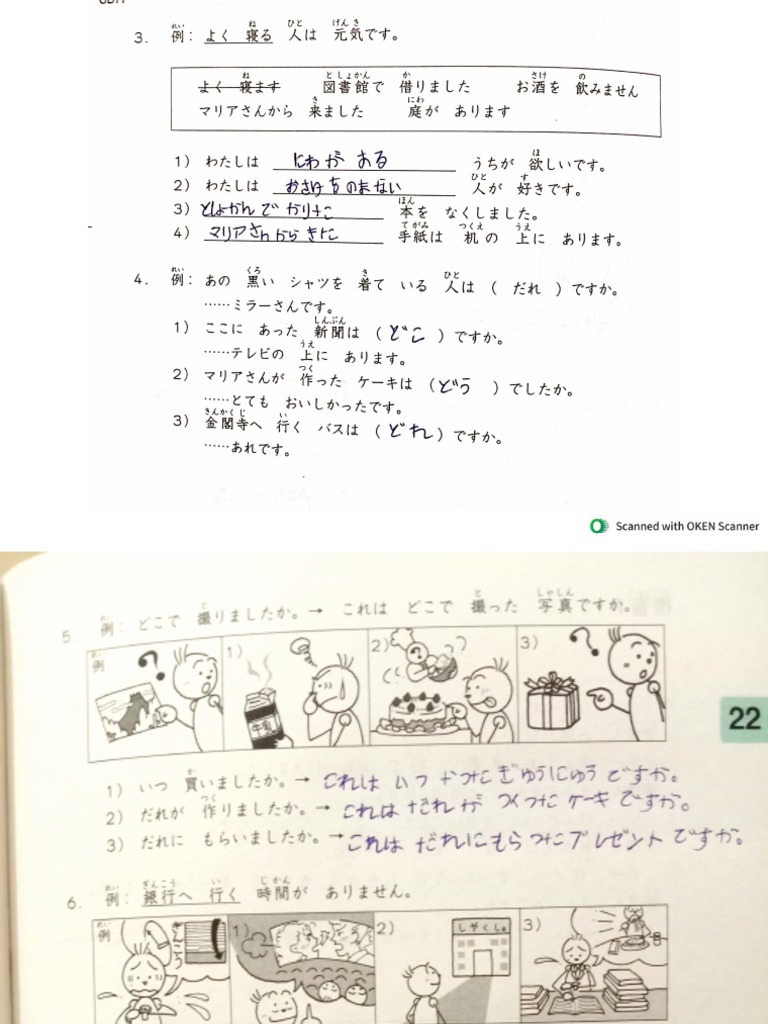 3. 例: よく 寝る 人は 元気です。
よく 寝ます 図書館で 借りました お酒を 飲みません
マリアさんから 来ました 庭が あります
1) わたしは にわが ある うちが 欲しいです。
2) わたしは おさけをのまない 人が 好きです。
3) としょかんで かりたこ 本を なくしました。
4) マリアさんから きた 手紙は 机の 上に あります。
4. 例: あの 黒い シャツを 着て いる 人は ( だれ )ですか。
……ミラーさんです。
1) ここに あった 新聞は (どこ)ですか。
……テレビの 上に あります。
2) マリアさんが 作った ケーキは (どう)でしたか。
……とても おいしかったです。
3) 金閣寺へ 行く バスは (どれ)ですか。
……あれです。
Scanned with OKEN Scanner
5. 例: どこで 撮りましたか。→ これは どこで 撮った 写真ですか。
例 1) 2) 3)
牛乳
22
1) いつ 買いましたか。→ これは いつ かった ぎゅうにゅう ですか。
2) だれが 作りましたか。→ これは だれが つくった ケーキ ですか。
3) だれに もらいましたか。→ これは だれに もらった プレゼント ですか。
6. 例: 銀行へ 行く 時間が ありません。
例 ぎんこう 1) 2) しやくしょ 3)